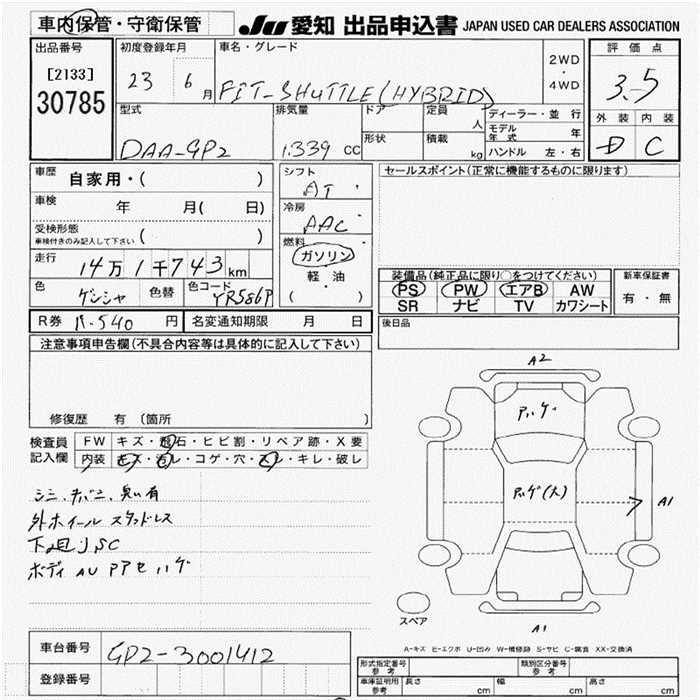 車内保管・守衛保管
JU 愛知 出品申込書 JAPAN USED CAR DEALERS ASSOCIATION
出品番号
[2133]
30785
初度登録年月
23 6月
車名・グレード
FIT-SHUTTLE(HYBRID)
2WD
・
4WD
評価点
3.5
外装 内装
D C
型式
DAA-GP2
排気量
1.339 CC
ドア
形状
定員
人
積載
kg
ディーラー・並行
モデル年式 年
ハンドル 左・右
車歴 自家用・( )
車検 年 月( 日)
受検形態
車検付きのみ記入して下さい ( )
走行 14万1千743km
色 ゲンシャ 色替 色コード YR586P
シフト
AT
冷房
AAC
燃料
ガソリン
軽・油
( )
セールスポイント(正常に機能するものに限ります)
装備品(純正品に限り○をつけてください)
PS PW エアB AW
SR ナビ TV カワシート
新車保証書
有・無
後日品
R券 540 円 名変通知期限 月 日
注意事項申告欄(不具合内容等は具体的に記入して下さい)
修復歴 有(箇所 )
検査員
記入欄
FW キズ・飛石・ヒビ割・リペア跡・X要
内装 キズ・汚レ・コゲ・穴・スレ・キレ・破レ
シミ、キバミ、臭い有
外ホイール スタッドレス
下廻りSC
ボディ AU PPセハゲ
A2
Pハゲ
Pハゲ(大)
A1
A1
スペア
A-キズ E-エクボ U-凹み W-補修跡 S-サビ C-腐食 XX-交換済
車台番号 GP2-3001412
登録番号
形式指定番号
参考
類別区分番号
参考
車庫証明用
参考
長さ cm 幅 cm 高さ cm